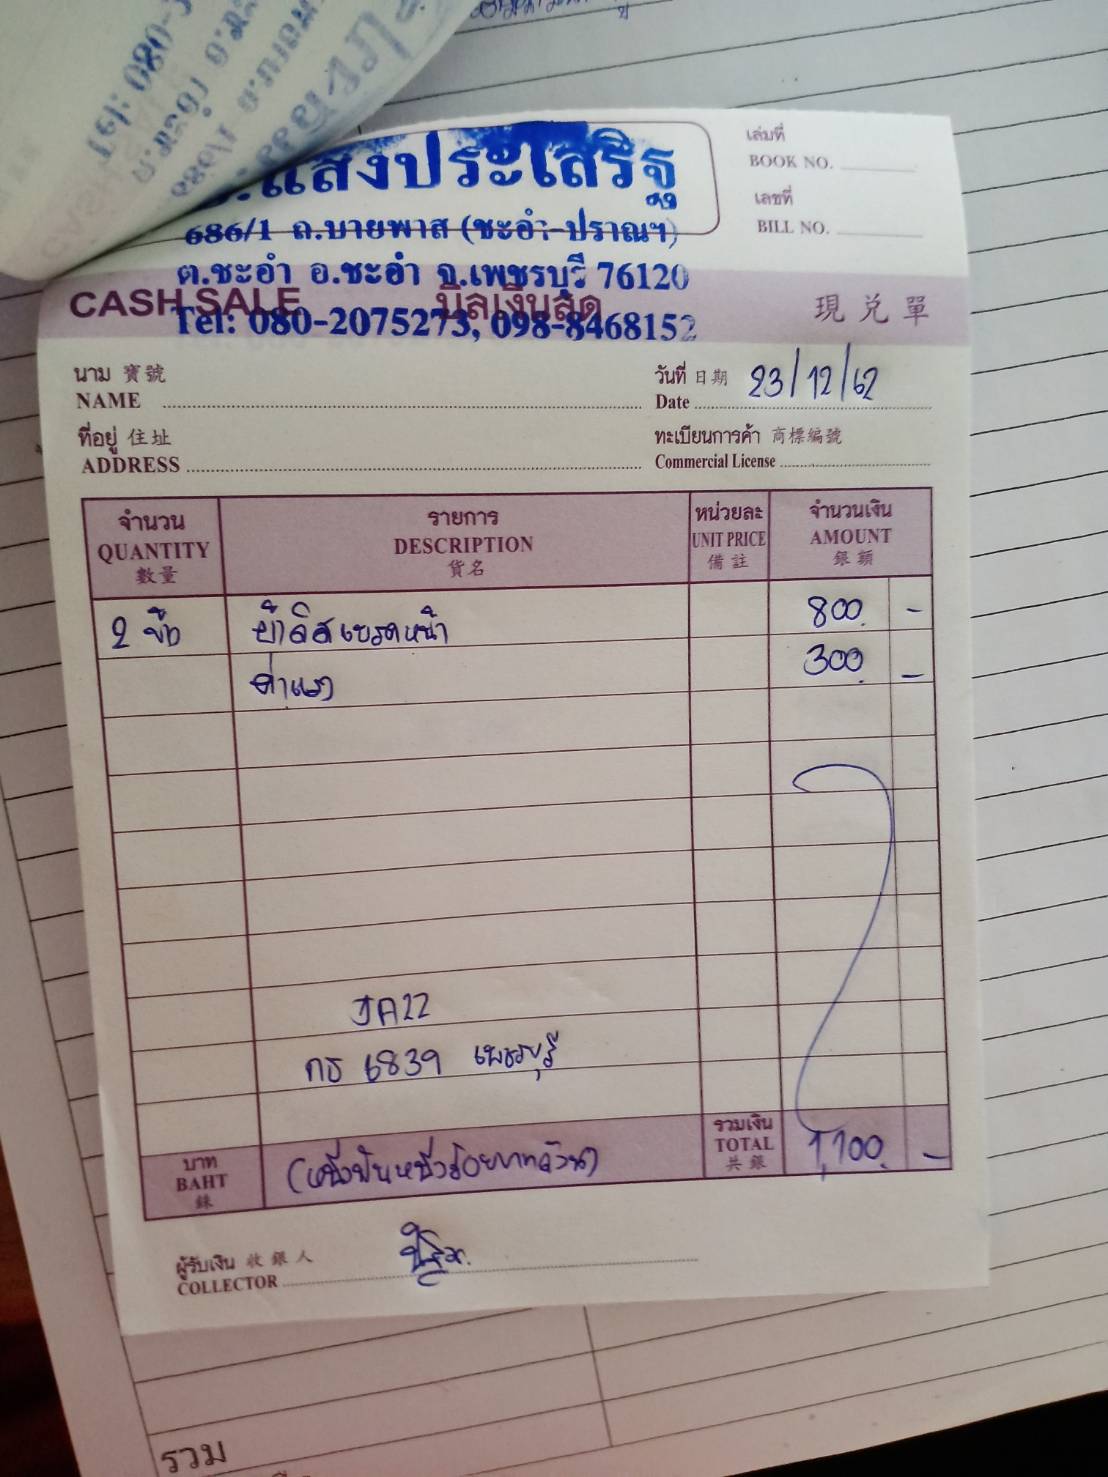 โทร:080-
แสงประเสริฐ
686/1 ถ.บายพาส (ชะอำ-ปราณฯ)
ต.ชะอำ อ.ชะอำ จ.เพชรบุรี 76120
Tel: 080-2075273, 098-8468152
เล่มที่
BOOK NO.
เลขที่
BILL NO.
CASH SALE บิลเงินสด 現兌單
นาม 寶號
NAME
วันที่ 日期
Date 23/12/62
ที่อยู่ 住址
ADDRESS
ทะเบียนการค้า 商標編號
Commercial License
จำนวน รายการ หน่วยละ จำนวนเงิน
QUANTITY DESCRIPTION UNIT PRICE AMOUNT
數量 貨名 備註 銀額
2 800.-
ค่าแรง 300.-
JA22
กธ 6839 เพชรบุรี
บาท
BAHT
銖
(หนึ่งพันหนึ่งร้อยบาทถ้วน)
รวมเงิน
TOTAL
共銀
1,100.-
ผู้รับเงิน 收銀人
COLLECTOR
รวม